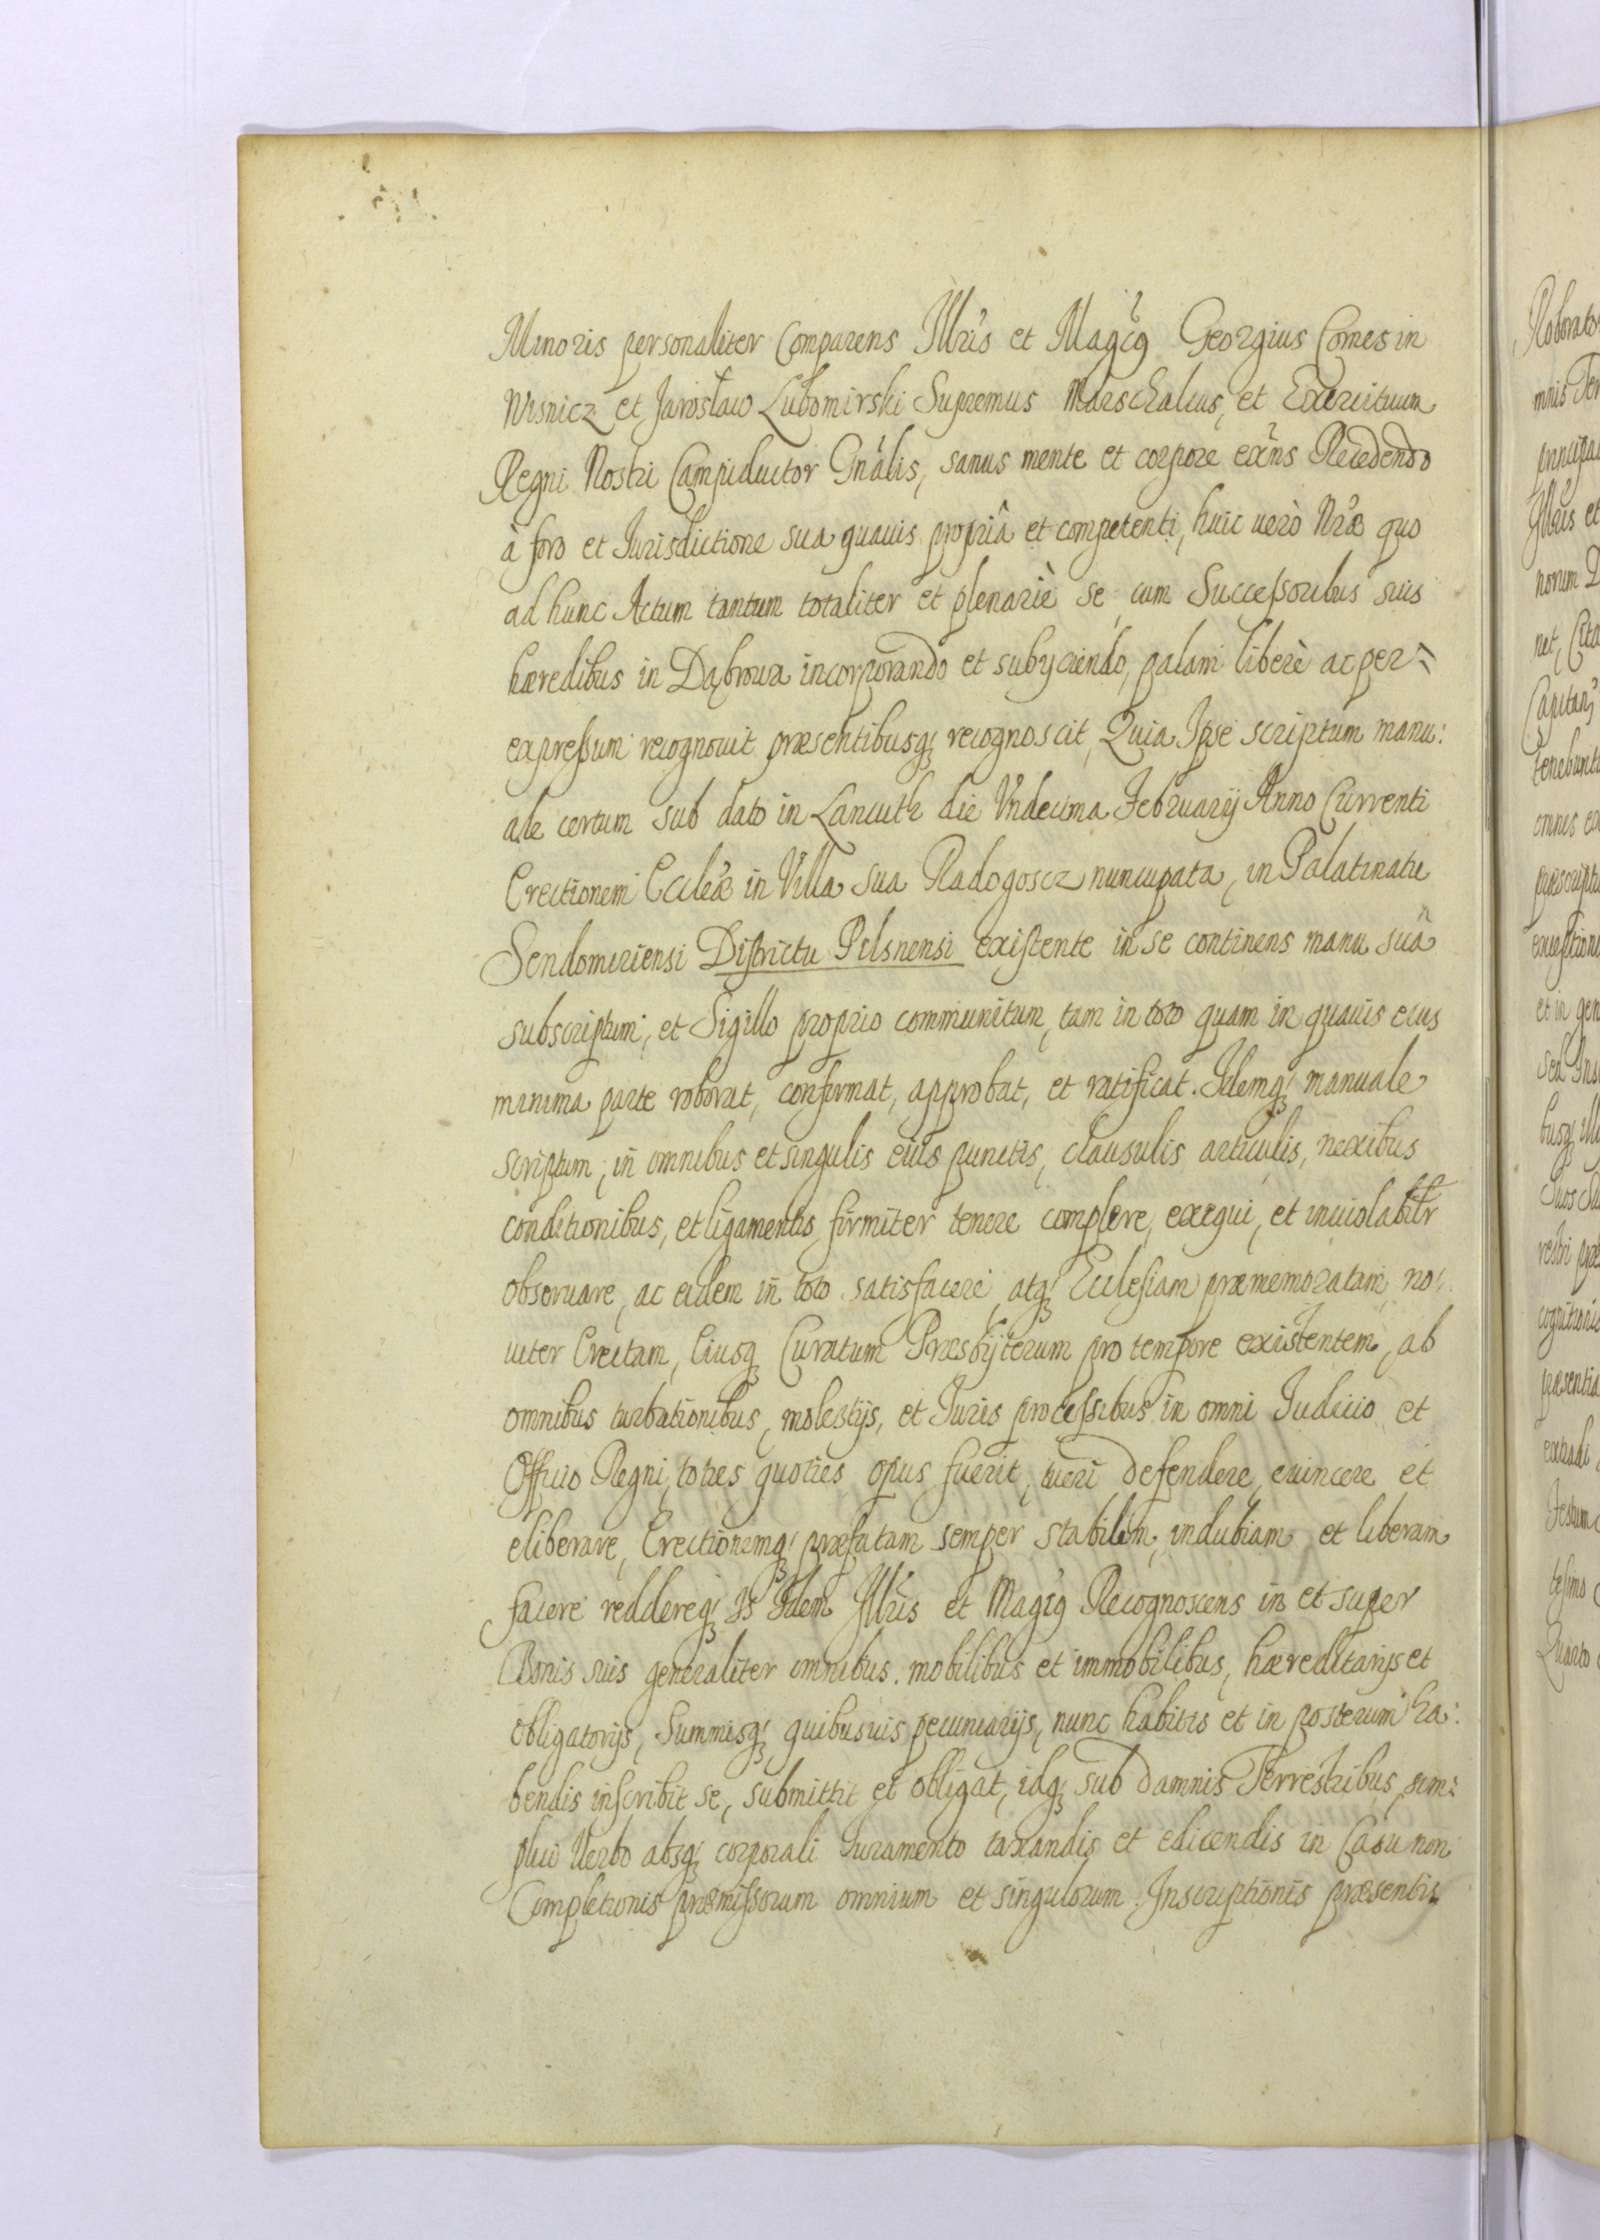 Minoris personaliter Comparens Illris et Magcq Georgius Comes in
Wisnicz et Jarosław Lubomirski Supremus Marschalcus, et Exercituum
Regni Nostri Campiductor Gnalis, sanus mente et corpore exns Recedendo
à foro et Jurisdictione sua quauis propriâ et competenti, huic uerò Nræ quo
ad hunc Actum tantum totaliter et plenariè se, cum Successoribus suis
hæredibus in Dąbrowa incorporando et subyciendo, palam liberè ac per=
expressum recognouit præsentibusq; recognoscit, Quia Ipse scriptum manu:
ale certum sub dato in Lancuth die Vndecima February Anno Currenti
Erectionem Ecclæ in Villa sua Radogoscz nuncupata, in Palatinatu
Sendomiriensi Districtu Pilsnensi existente in se continens manu suâ
subscriptum, et Sigillo proprio communitum, tam in toto quam in quauis eius
minima parte roborat, confirmat, approbat, et ratificat. Idemq; manuale
scriptum, in omnibus et singulis eius punctis, clausulis articulis, nexibus
conditionibus, et ligamentis firmiter tenere complere, exequi, et inuiolabilr
obseruare, ac eidem in toto satisfacere, atq; Ecclesiam præmemoratam no:
uiter Erectam, Eiusq; Curatum Præsbyterum pro tempore existentem, ab
omnibus turbationibus, molestys, et Juris processibus in omni Judicio et
Officio Regni, toties quoties opus fuerit, tueri defendere, euincere et
eliberare, Erectionemq; præfatam semper stabilem, indubiam et liberam
facere reddereq; Is Idem Illris et Magcq Recognoscens in et super
Bonis suis generaliter omnibus. mobilibus et immobilibus, hæreditarys et
obligatorys, Summisq; quibusuis pecuniarys, nunc habitis et in posterum ha:
bendis inscribit se, submittit et obligat, idq; sub damnis Terrestribus, sim:
plici Verbo absq; corporali Juramento taxandis et edicendis in Casu non
Completionis præmissorum omnium et singulorum. Inscriptionis præsentis